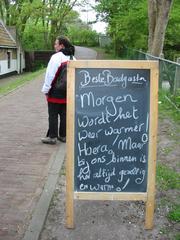 Beste Badgasten
Morgen
Wordt het
weer warmer!
Hoera! Maar
bij ons binnen is
het altijd gezellig
en warm!